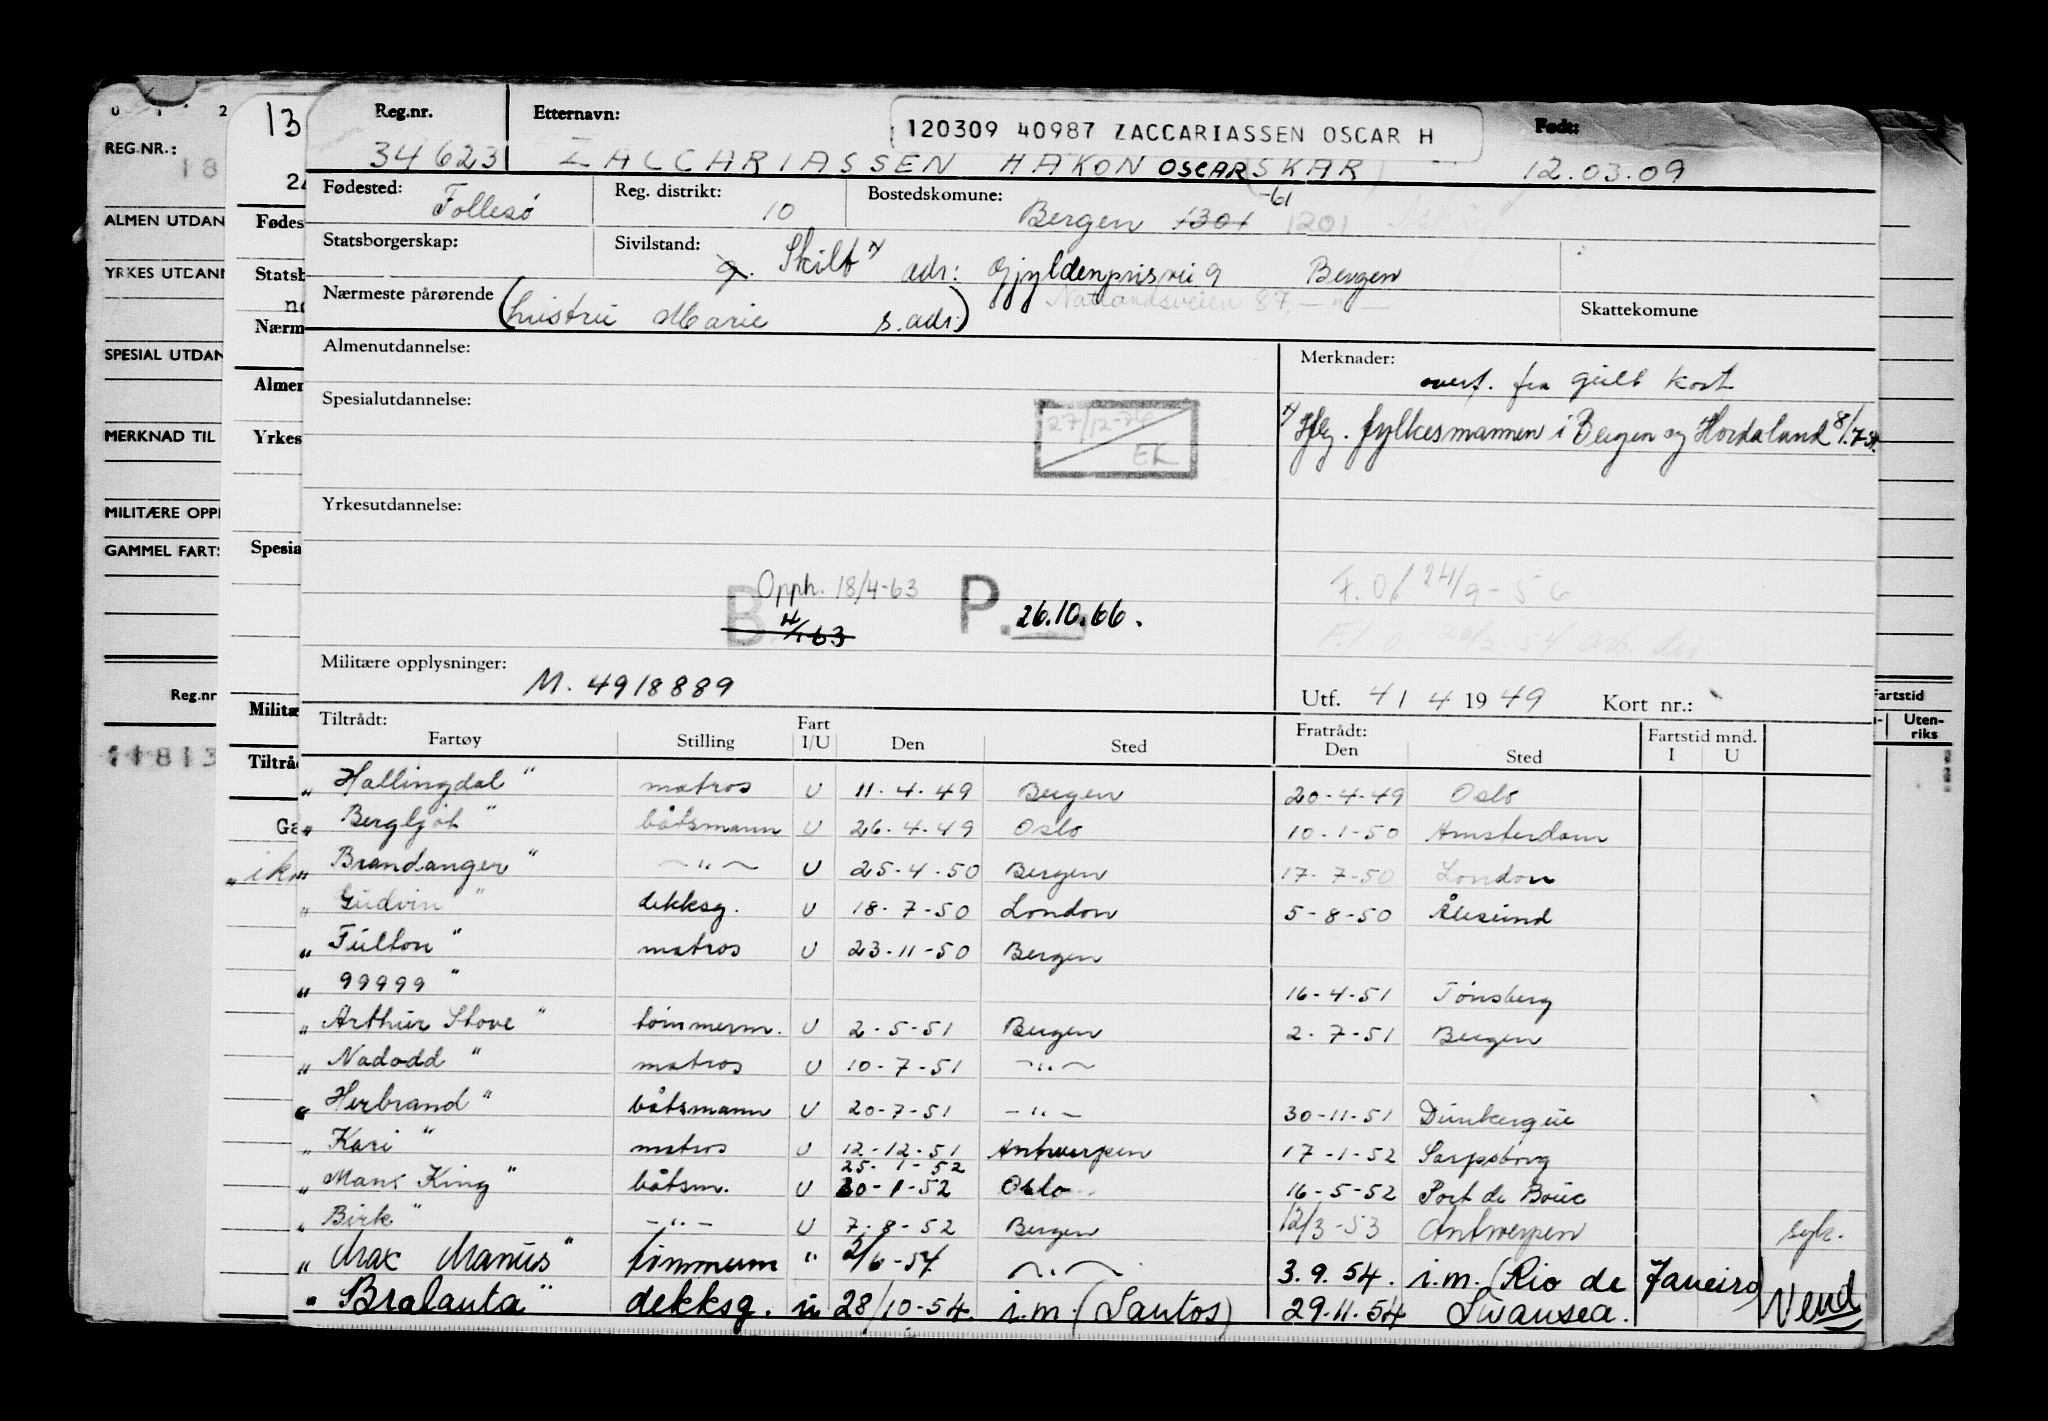 Reg.nr. Etternavn: 120309 40987 ZACCARIASSEN OSCAR H Født:
34623 ZACCARIASSEN HAKON OSCAR (SKAR) 12.03.09
Fødested: Follesø Reg. distrikt: 10 Bostedskomune: Bergen 1301 -61 1201
Statsborgerskap: Sivilstand: g. Skilt adr: Gyldenprisvei 9 Bergen
Nærmeste pårørende (Christrie Marie s. adr.) Natlandsveien 87, — " — Skattekomune
Almenutdannelse: Merknader:
overf. fra gult kort
Spesialutdannelse: fylkesmannen i Bergen og Hordaland
27/12-
Yrkesutdannelse:
B Opph. 18/4-63 P. 26.10.66.
F.O/ 24/9-56
Militære opplysninger: M. 4918889
Utf. 4/ 4 1949 Kort nr.:
Tiltrådt: Fratrådt: Fartstid mnd.
Fartøy Stilling Fart I/U Den Sted Den Sted I U
„ Hallingdal " matros U 11-4-49 Bergen 20-4-49 Oslo
„ Bergljot " båtsmann U 26-4-49 Oslo 10-1-50 Amsterdam
„ Brandanger " — " — U 25-4-50 Bergen 17-7-50 London
„ Gudvin " dekksg. U 18-7-50 London 5-8-50 Ålesund
„ Fulton " matros U 23-11-50 Bergen
„ 99999 " 16-4-51 Tønsberg
„ Arthur Stove " tømmerm. U 2-5-51 Bergen 2-7-51 Bergen
„ Nadodd " matros U 10-7-51 — " —
„ Herbrand " båtsmann U 20-7-51 — " — 30-11-51 Dunkerque
„ Kari " matros U 12-12-51 Antwerpen 17-1-52 Sarpsborg
25-1-52
„ Mans King " båtsm. U 30-1-52 Oslo 16-5-52 Port de Bouc
„ Birk " — " — U 7-8-52 Bergen 12/3-53 Antwerpen syk.
„ Max Manus " tømmerm " 2/6-54 — " — 3.9.54. i.m. (Rio de Janeiro)
„ Bralanta " dekksg. u 28/10-54. i.m. (Santos) 29.11.54 Swansea. Vend
REG.NR.: 18
ALMEN UTDAN
YRKES UTDANN
SPESIAL UTDAN
MERKNAD TIL
MILITÆRE OPPL
GAMMEL FARTS
Reg.nr
11813
13
Fødes
Statsb
Nærm
Almer
Yrkes
Spesia
Militæ
Tiltråd
Ga
Fartstid
Uten-
riks